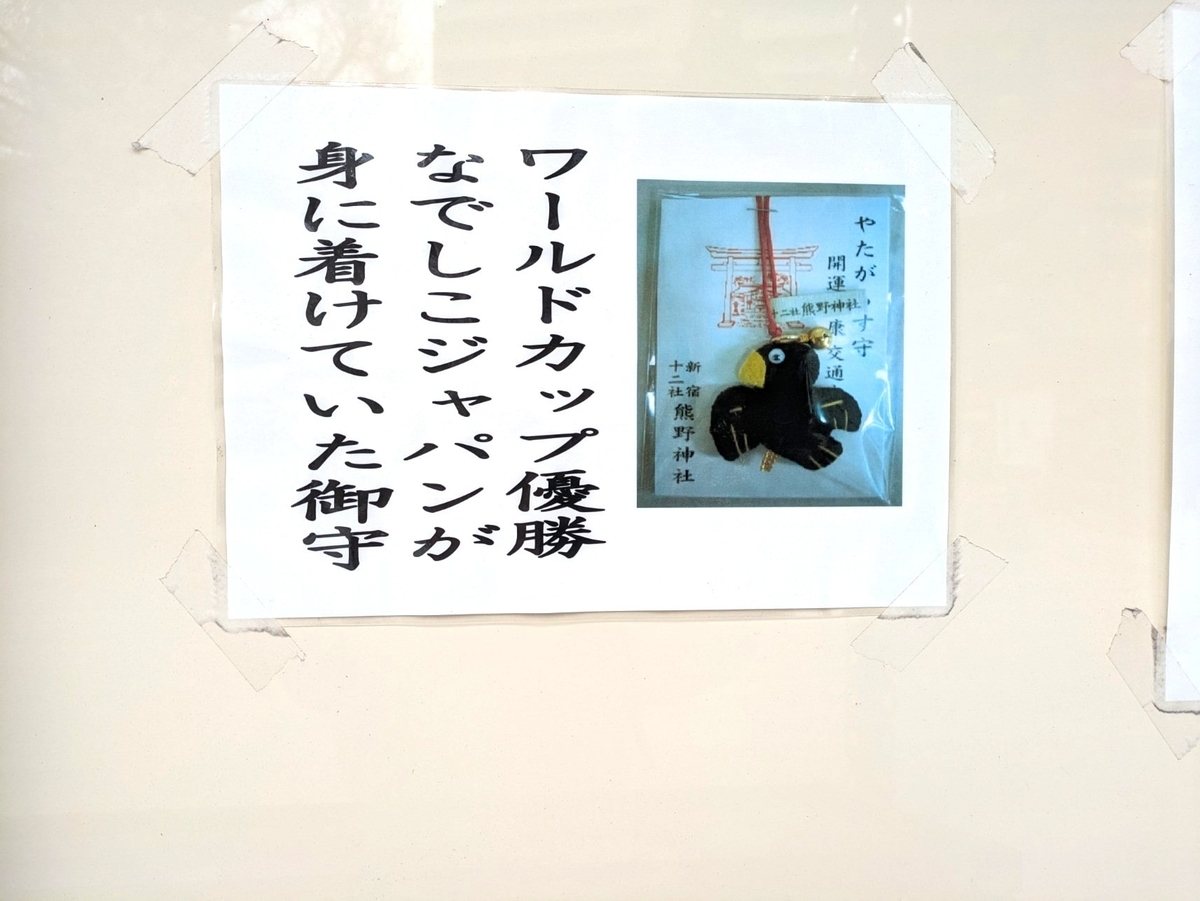 やたが す守
開運 康 交通
十二社 熊野神社
新宿
十二社
熊野神社
ワールドカップ優勝
なでしこジャパンが
身に着けていた御守